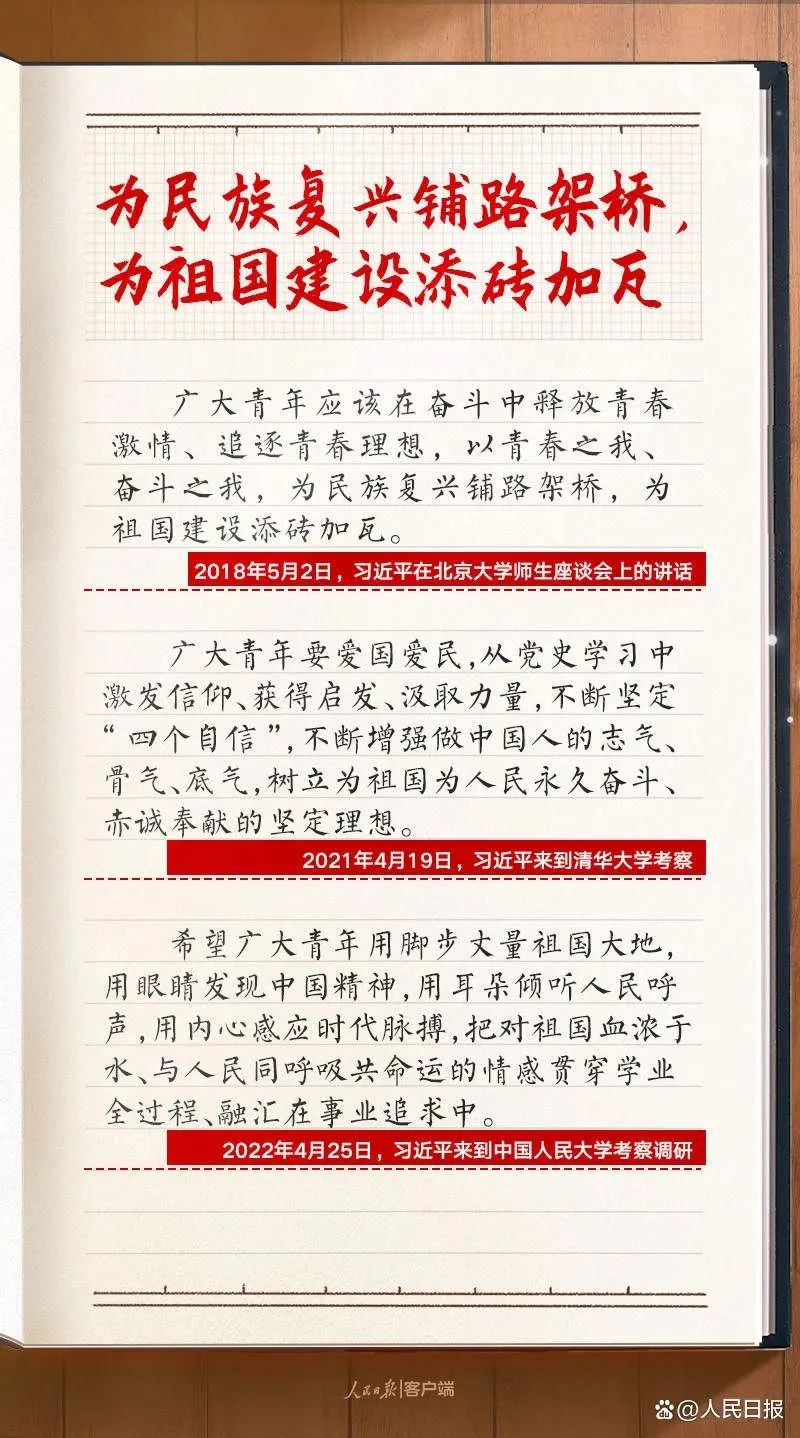 为民族复兴铺路架桥，
为祖国建设添砖加瓦
广大青年应该在奋斗中释放青春
激情、追逐青春理想，以青春之我、
奋斗之我，为民族复兴铺路架桥，为
祖国建设添砖加瓦。
2018年5月2日，习近平在北京大学师生座谈会上的讲话
广大青年要爱国爱民，从党史学习中
激发信仰、获得启发、汲取力量，不断坚定
“四个自信”，不断增强做中国人的志气、
骨气、底气，树立为祖国为人民永久奋斗、
赤诚奉献的坚定理想。
2021年4月19日，习近平来到清华大学考察
希望广大青年用脚步丈量祖国大地，
用眼睛发现中国精神，用耳朵倾听人民呼
声，用内心感应时代脉搏，把对祖国血浓于
水、与人民同呼吸共命运的情感贯穿学业
全过程、融汇在事业追求中。
2022年4月25日，习近平来到中国人民大学考察调研
人民日报|客户端
@人民日报